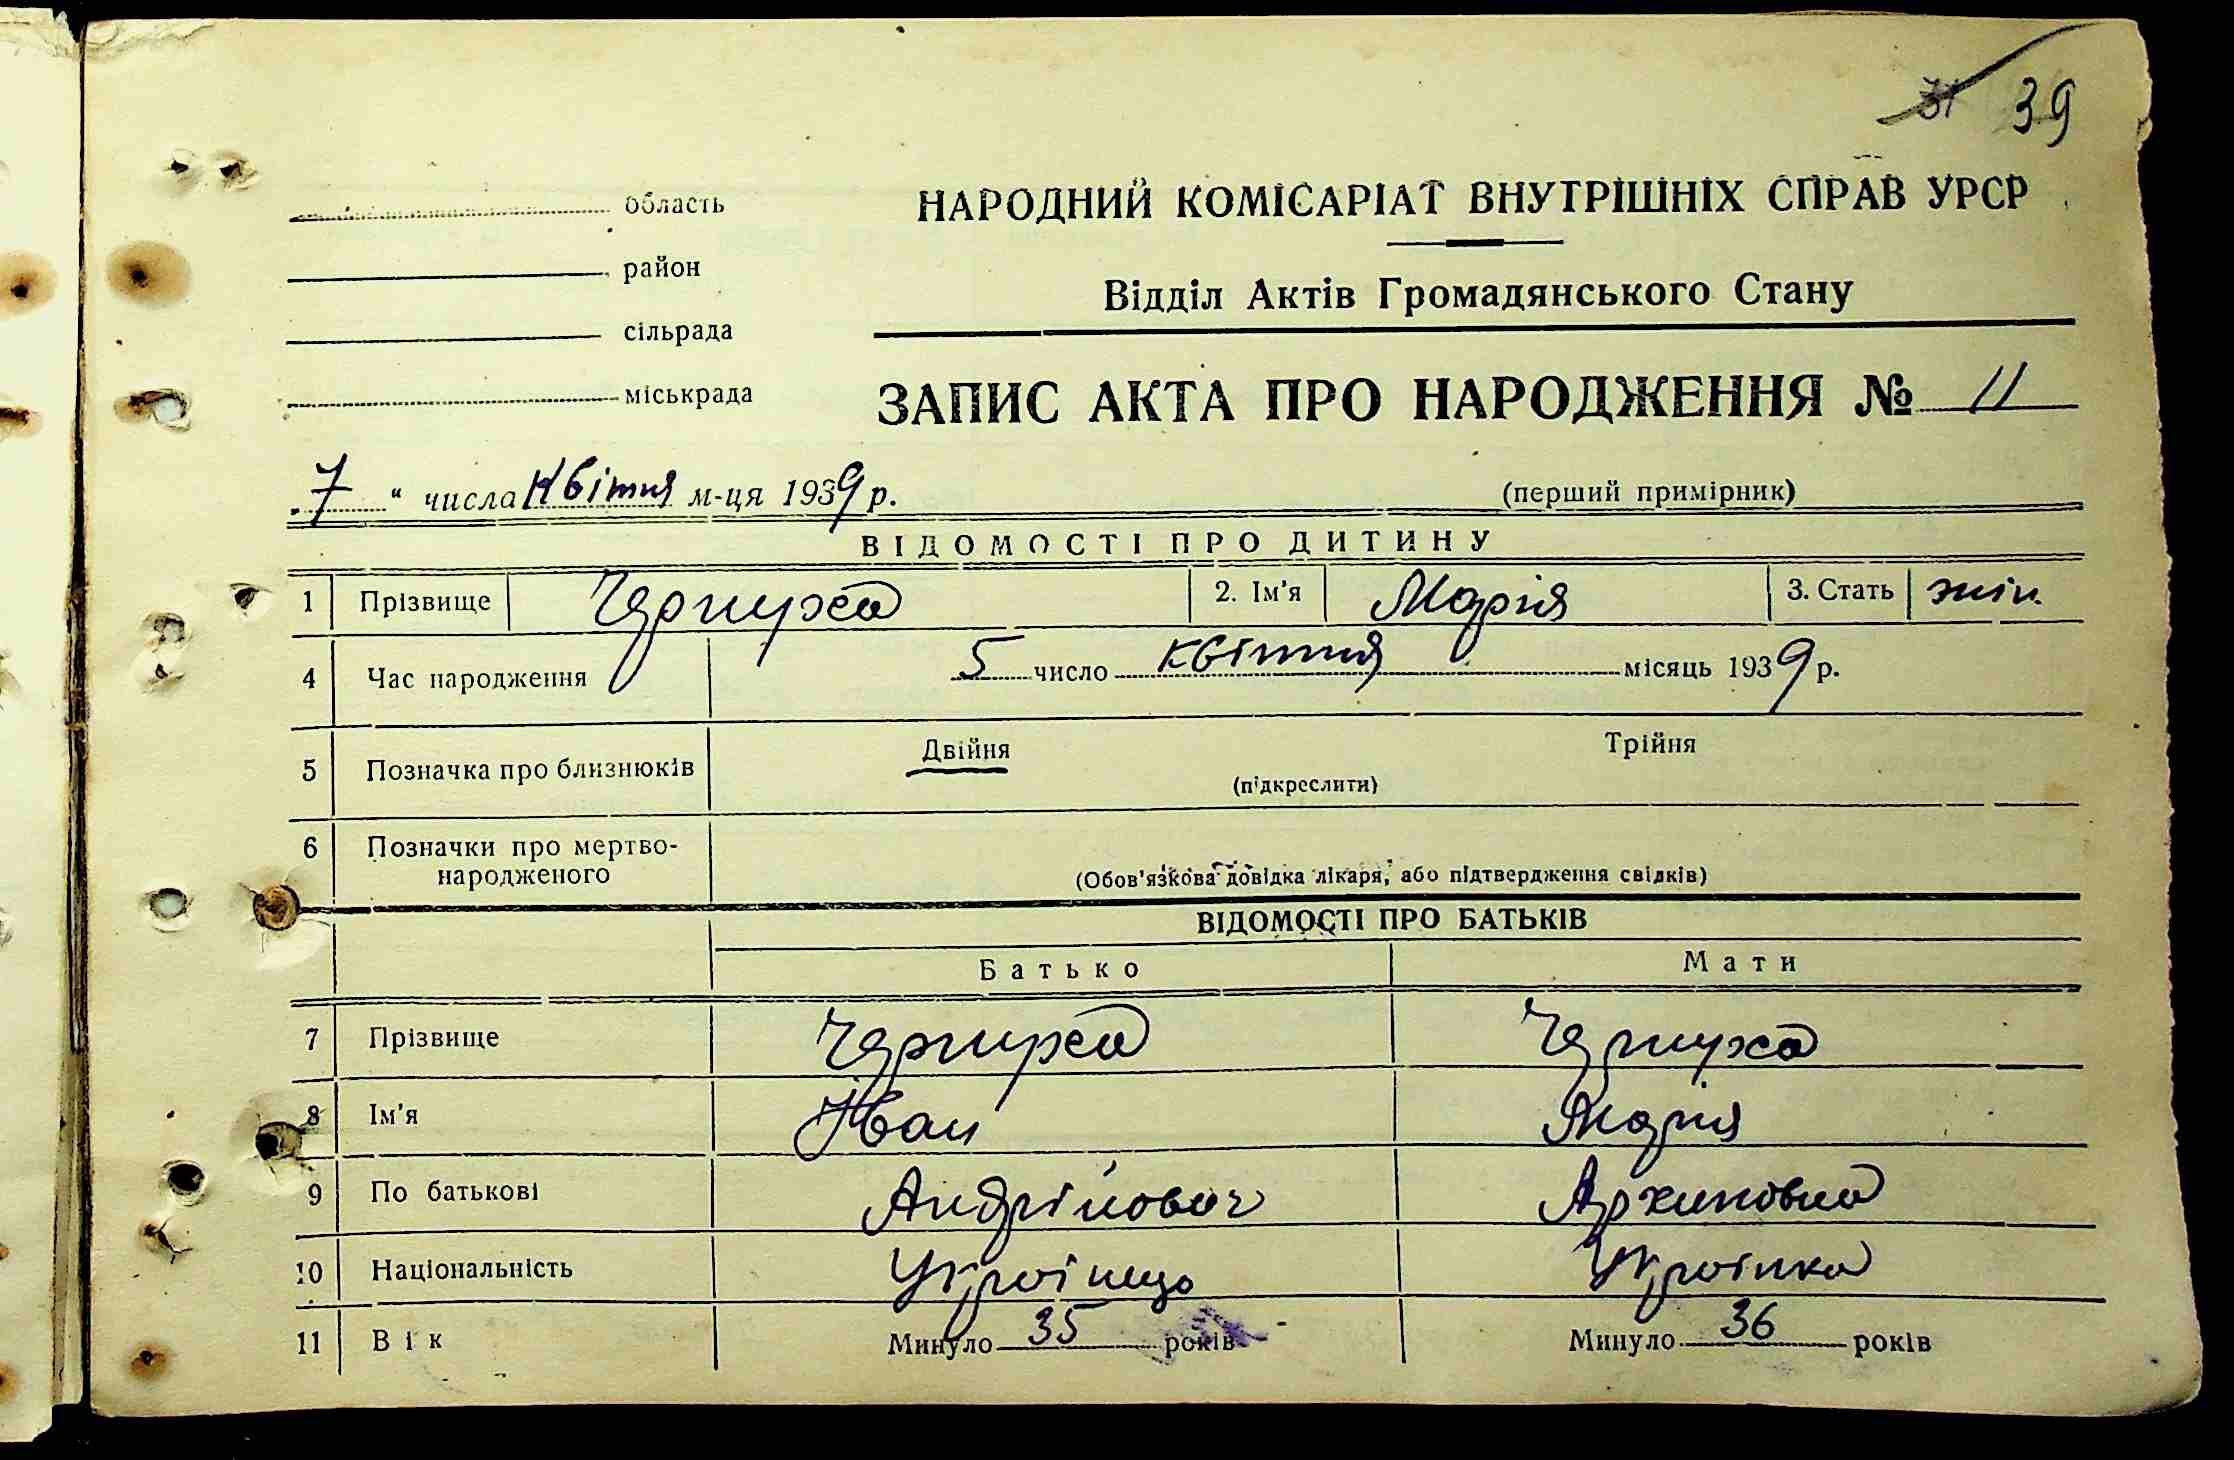 39
область
район
сільрада
міськрада
НАРОДНИЙ КОМІСАРІАТ ВНУТРІШНІХ СПРАВ УРСР
Відділ Актів Громадянського Стану
ЗАПИС АКТА ПРО НАРОДЖЕННЯ № 11
„7“ числа квітня м-ця 1939 р.
(перший примірник)
ВІДОМОСТІ ПРО ДИТИНУ
1 Прізвище Чернуха 2. Ім'я Марія 3. Стать жін.
4 Час народження 5 число квітня місяць 1939 р.
5 Позначка про близнюків Двійня Трійня
(підкреслити)
6 Позначки про мертво-
народженого (Обов'язкова довідка лікаря, або підтвердження свідків)
ВІДОМОСТІ ПРО БАТЬКІВ
Батько Мати
7 Прізвище Чернуха Чернуха
8 Ім'я Іван Марія
9 По батькові Андрійович Архиповна
10 Національність Українець Українка
11 Вік Минуло 35 років Минуло 36 років